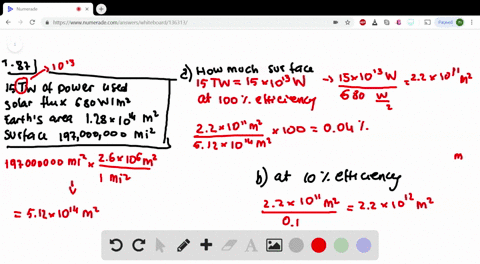 Numerade
https://www.numerade.com/answers/whiteboard/136313/
1.87
10^13
15 TW of power used
solar flux 680 W/m²
Earth's area 1.28×10^14 m²
Surface 197,000,000 mi²
197000000 mi² × 2.6×10^6 m² / 1 mi²
= 5.12×10^14 m²
a) How much surface
15 TW = 15×10^13 W → 15×10^13 W / 680 W/2 = 2.2×10^11 m²
at 100% efficiency
2.2×10^11 m² / 5.12×10^14 m² × 100 = 0.04%
m
b) at 10% efficiency
2.2×10^11 m² / 0.1 = 2.2×10^12 m²